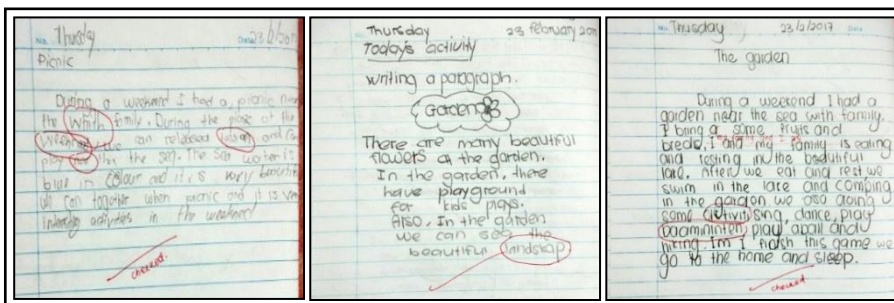 Thursday
Date 23/2/201
Picnic
During a weekend I had a, picnic near
the whith family. During the place at the
weekend we can relaxed and
play the sea. The sea water is
blue in colour and it is very beautiful
we can together when picnic and it is very
interesting activities in the weekend
checked.
Thursday 23 february 201
Today's activity
writing a paragraph.
Garden
There are many beautiful
flowers at the garden.
In the garden, there
have playground
for kids plays.
Also, In the garden
we can see the
beautiful landskap
No. Thursday 23/2/2017
The garden
During a weekend I had a
garden near the sea with family.
I bring a some fruits and
breds. I and my family is eating
and resting in the beautiful
lake. After we eat and rest we
swim in the lace and camping
in the garden we also going
some activiti sing, dance, play
baaminten, play a ball and
hiking. I'm I finish this game we
go to the home and sleep.
checked.